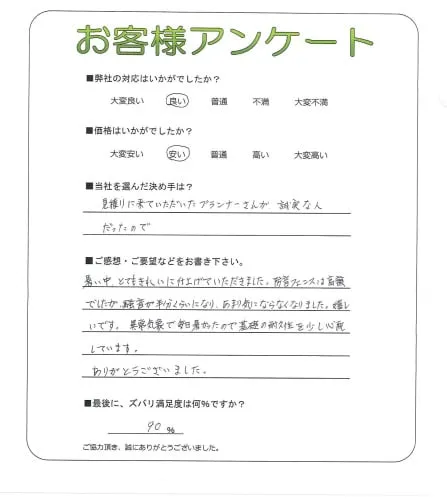 お客様アンケート
■弊社の対応はいかがでしたか?
大変良い 良い 普通 不満 大変不満
■価格はいかがでしたか?
大変安い 安い 普通 高い 大変高い
■当社を選んだ決め手は?
見積りに来ていただいたプランナーさんが 誠実な人
だったので
■ご感想・ご要望などをお書き下さい。
暑い中、とてもきれいに仕上げていただきました。防音フェンスは高価
でしたが、騒音が半分くらいになり、あまり気にならなくなりました。嬉し
いです。異常気象で毎日暑かったので基礎の耐久性を少し心配
しています。
ありがとうございました。
■最後に、ズバリ満足度は何%ですか?
90 %
ご協力頂き、誠にありがとうございました。